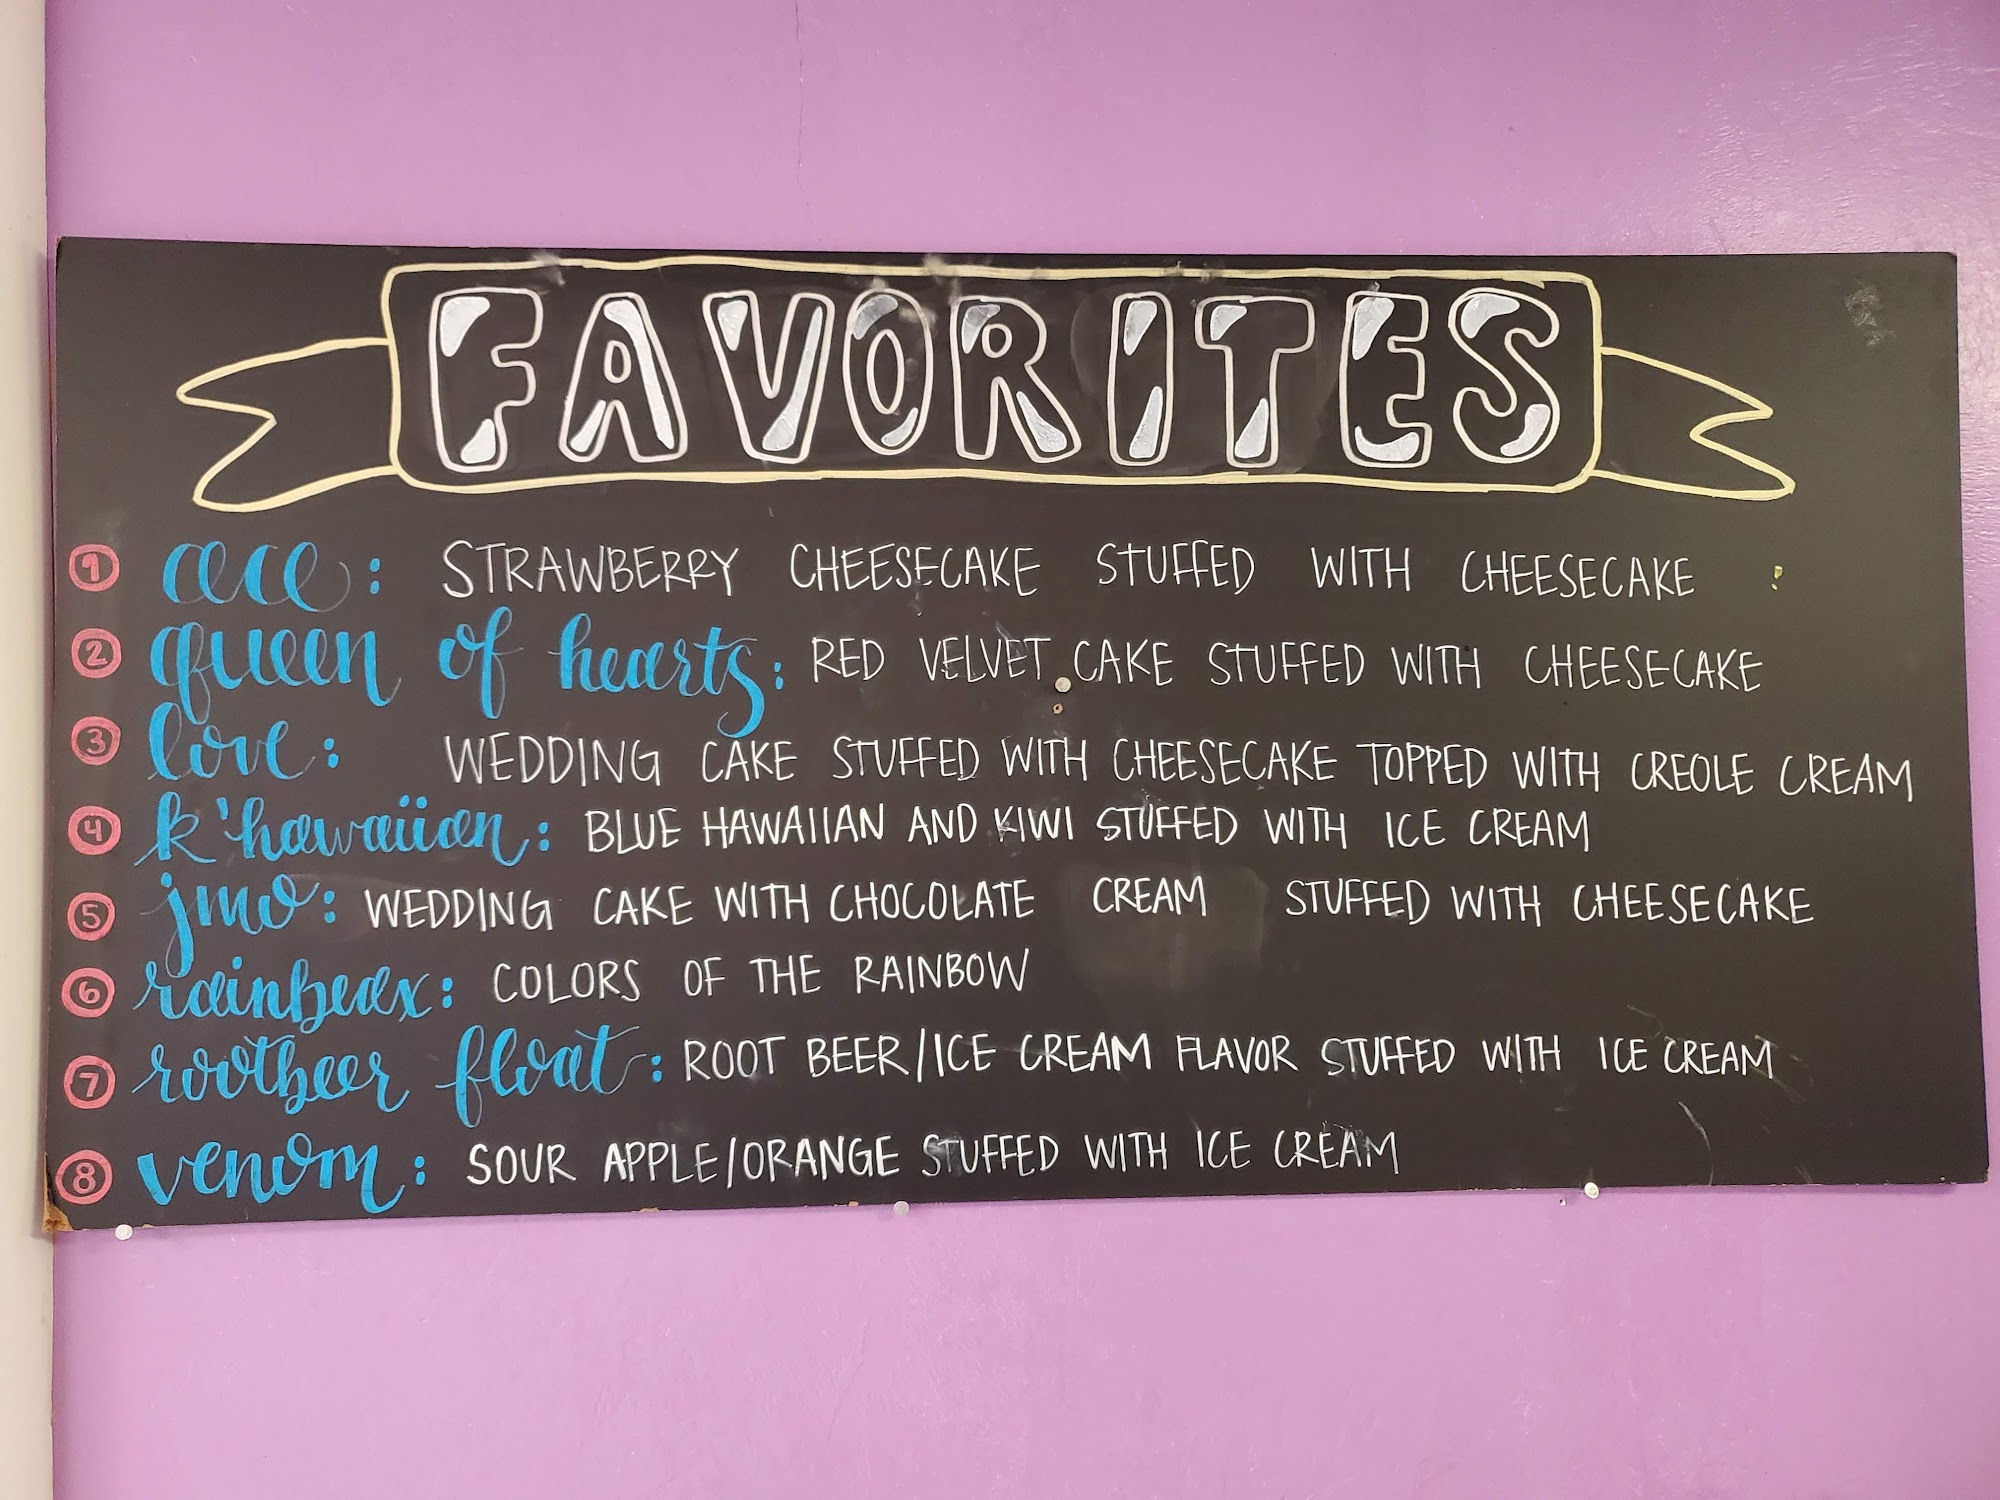 FAVORITES
1 cece: STRAWBERRY CHEESECAKE STUFFED WITH CHEESECAKE
2 queen of hearts: RED VELVET CAKE STUFFED WITH CHEESECAKE
3 love: WEDDING CAKE STUFFED WITH CHEESECAKE TOPPED WITH CREOLE CREAM
4 k'hawaiian: BLUE HAWAIIAN AND KIWI STUFFED WITH ICE CREAM
5 jmo: WEDDING CAKE WITH CHOCOLATE CREAM STUFFED WITH CHEESECAKE
6 rainbeax: COLORS OF THE RAINBOW
7 rootbeer float: ROOT BEER/ICE CREAM FLAVOR STUFFED WITH ICE CREAM
8 venom: SOUR APPLE/ORANGE STUFFED WITH ICE CREAM